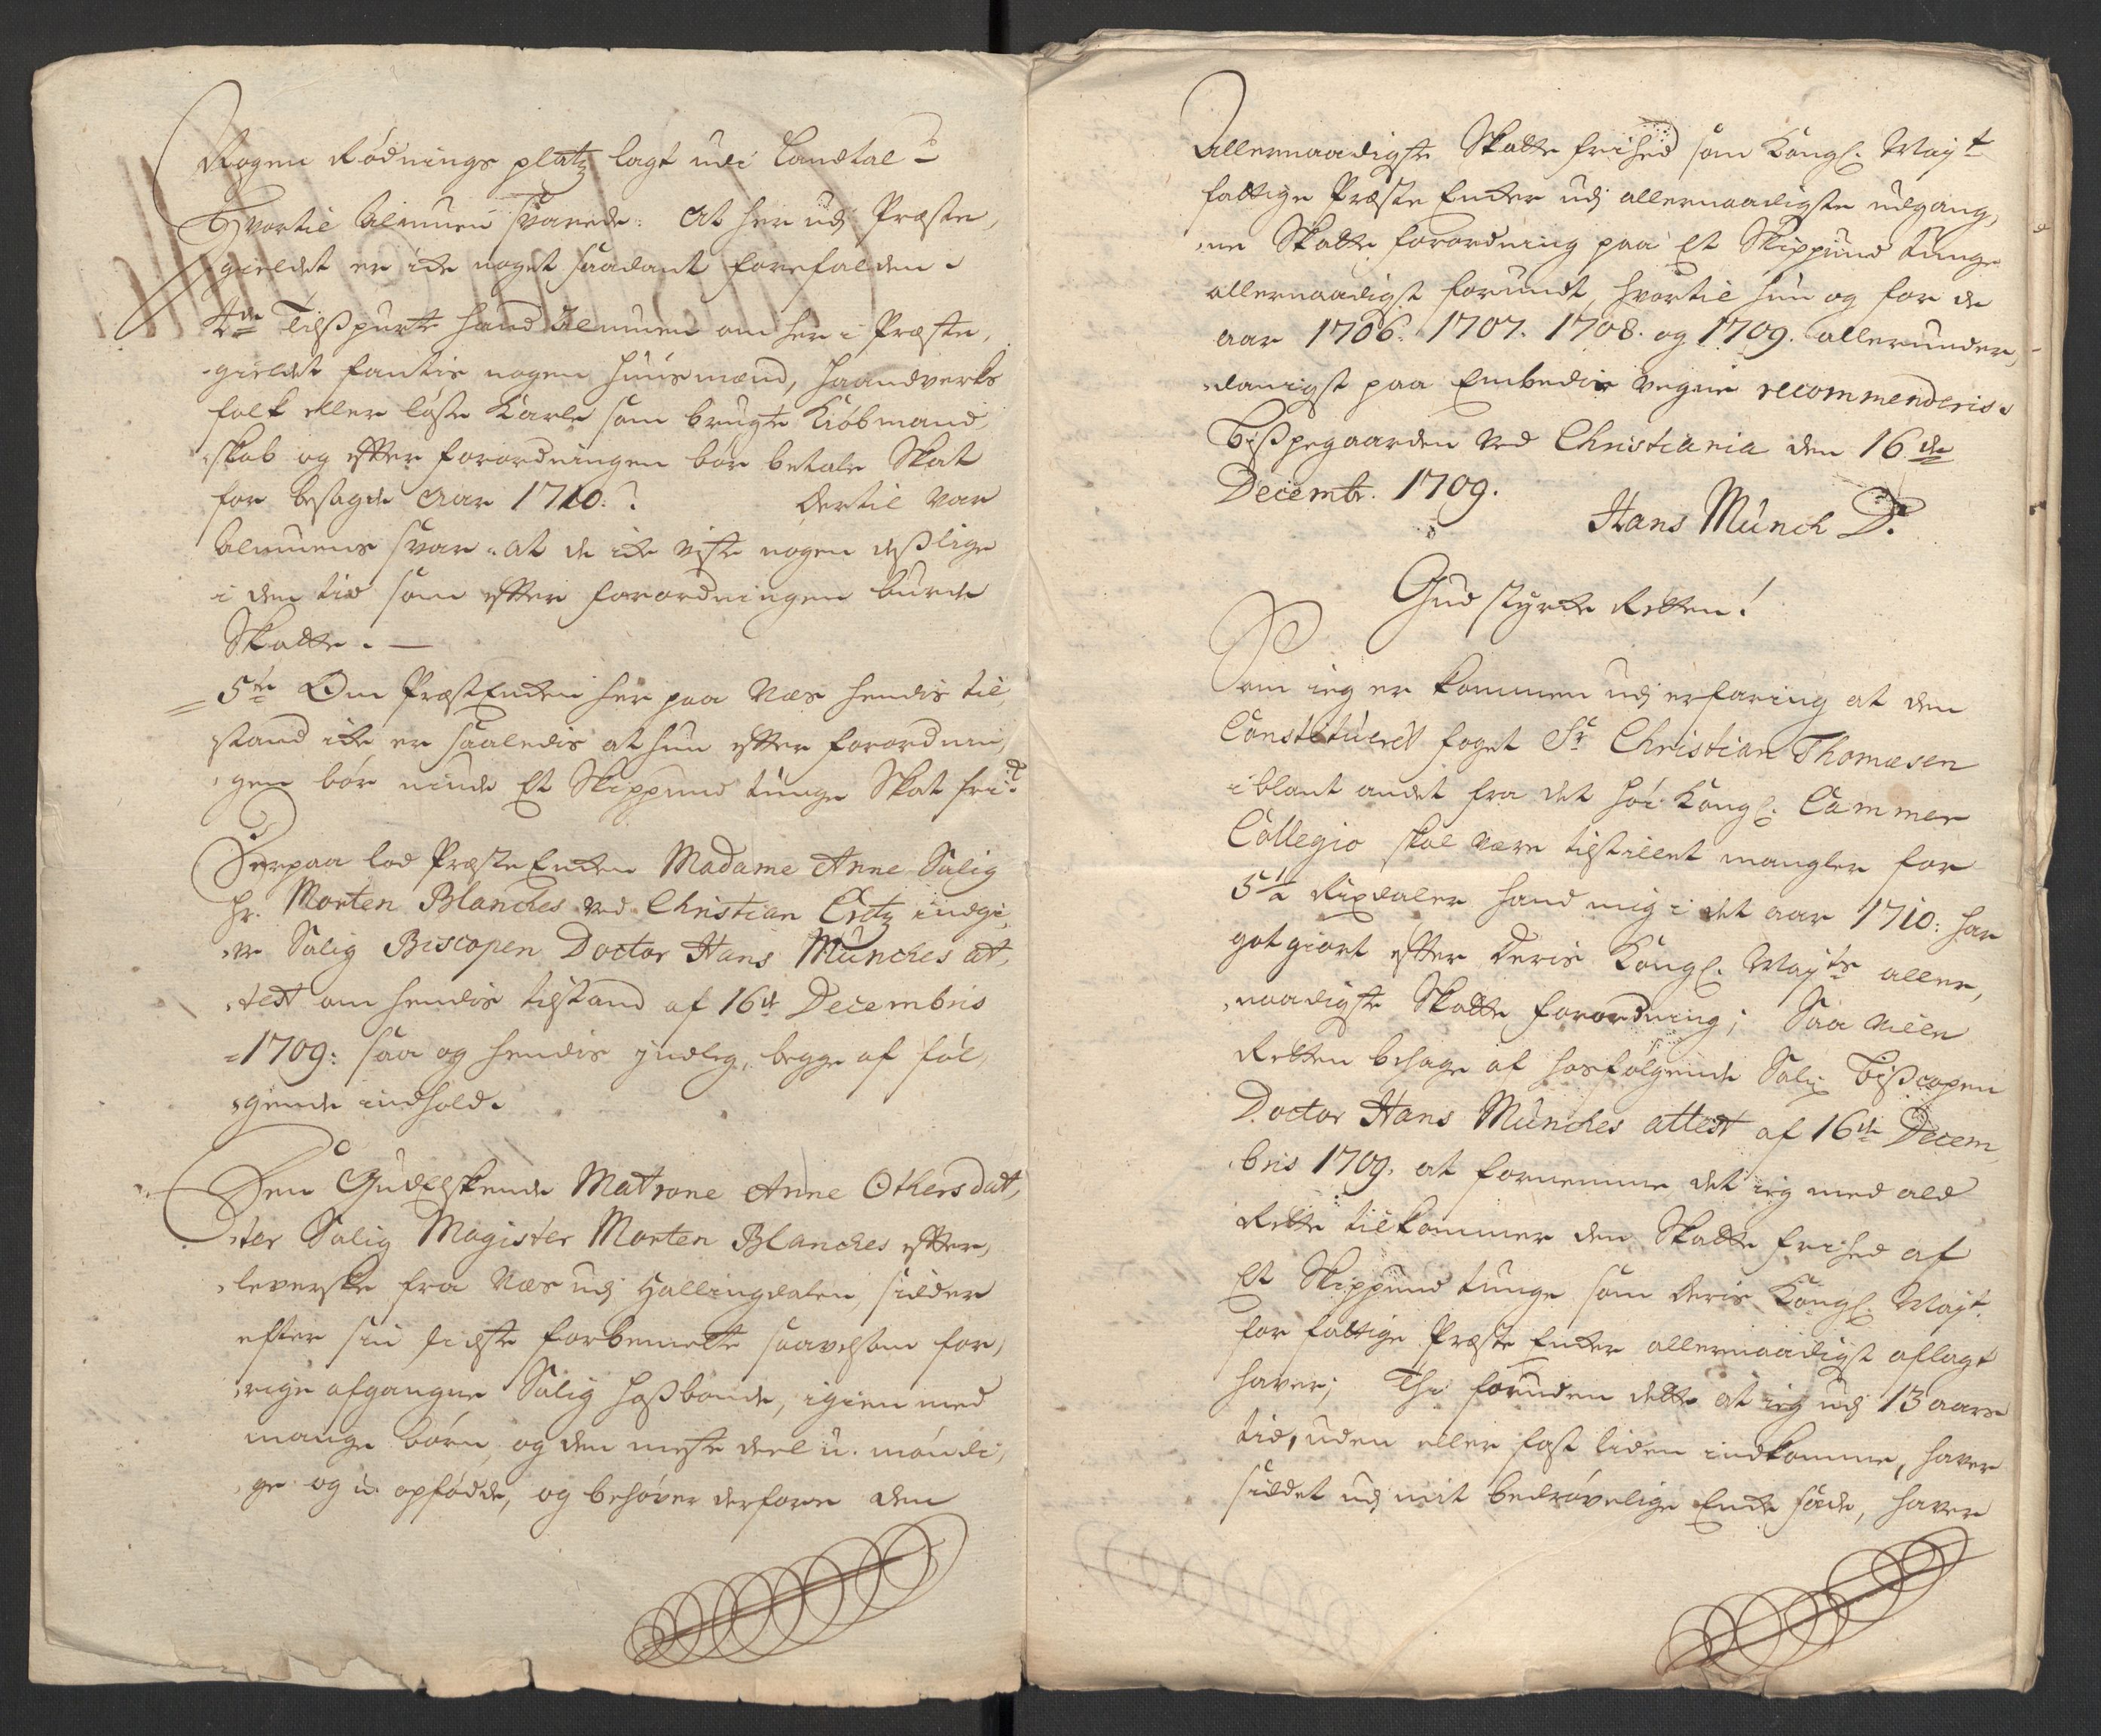 Nogen Rødnings platz lagt udi Landtal?
Hvortil Almuen svarede: At her udj Præste,
gieldet er icke noget saadant forefalden.
4de Tilspurte hand Almuen om her i Præste,
gieldet fantis nogen Huusmænd, Haandverks
folk eller løse Karle som brugte Kiøbmand,
skab og efter forordningen bør betale Skat
for besagde Aar 1710.? Dertil var
Almuens svar: at de icke viste nogen deslige
i den tid som efter forordningen burde
Skatte. —
5te Om PræstEnken her paa Næs hendis til,
stand icke er saaledis at hun efter forordnin,
gen bør niude Et Skippund tunge Skat fri?
Herpaa lod PræsteEnken Madame Anne Salig
Hr. Morten Blanches ved Christian Ertz indgi,
ve Salig Biscopen Doctor Hans Münches at,
test om hendis tilstand af 16de Decembris
1709: saa og hendis indleg, begge af føl,
gende indhold.
Den Gudelskende Matrone Anne Othersdat,
ter Salig Magister Morten Blanches efter,
leverske fra Næs udj Hallingdalen, sidder
efter sin sidste forbemelte saavelsom for,
rige afgangne Salig Hosbonde, igien med
mange børn, og den meste deel u-møndi,
ge og u-opfødde, og behøver derfore den
Allernaadigste Skatte frihed som Kongl. Mayt
fattige Præste Enker udj allernaadigste udgang,
ne Skatte forordning paa Et Skippund tunge
allernaadigst forundt, hvortil hun og for de
aar 1706. 1707. 1708. og 1709. allerunder,
danigst paa Embedis vegne recommenderis.
Bispegaarden ved Christiania den 16de
Decembr. 1709.
Hans Münch D.
Gud styrke Retten!
Som ieg er kommen udj erfaring at den
Constitueret foget Sr Christian Thomæsen
iblant andet fra det høi Kongl. Cammer
Collegio skal være tilstillet mangler for
5½ Rixdaler hand mig i det aar 1710: har
gotgiort efter Deris Kongl. Mayts aller,
naadigste Skatte forordning; Saa ville
Retten behage af hosfølgende Salig Biscopen
Doctor Hans Münches attest af 16de Decem
bris 1709. at fornemme det ieg med ald
Rette tilkommer den Skatte frihed af
Et Skippund tunge som Deris Kongl. Mayt.
for fattige Præste Enker allernaadigst aflagt
haver; Thi foruden dette at ieg udj 13 aars
tid, uden eller fast liden indkomme, haver
siddet udj mit bedrøvelige Enke sæde, haver